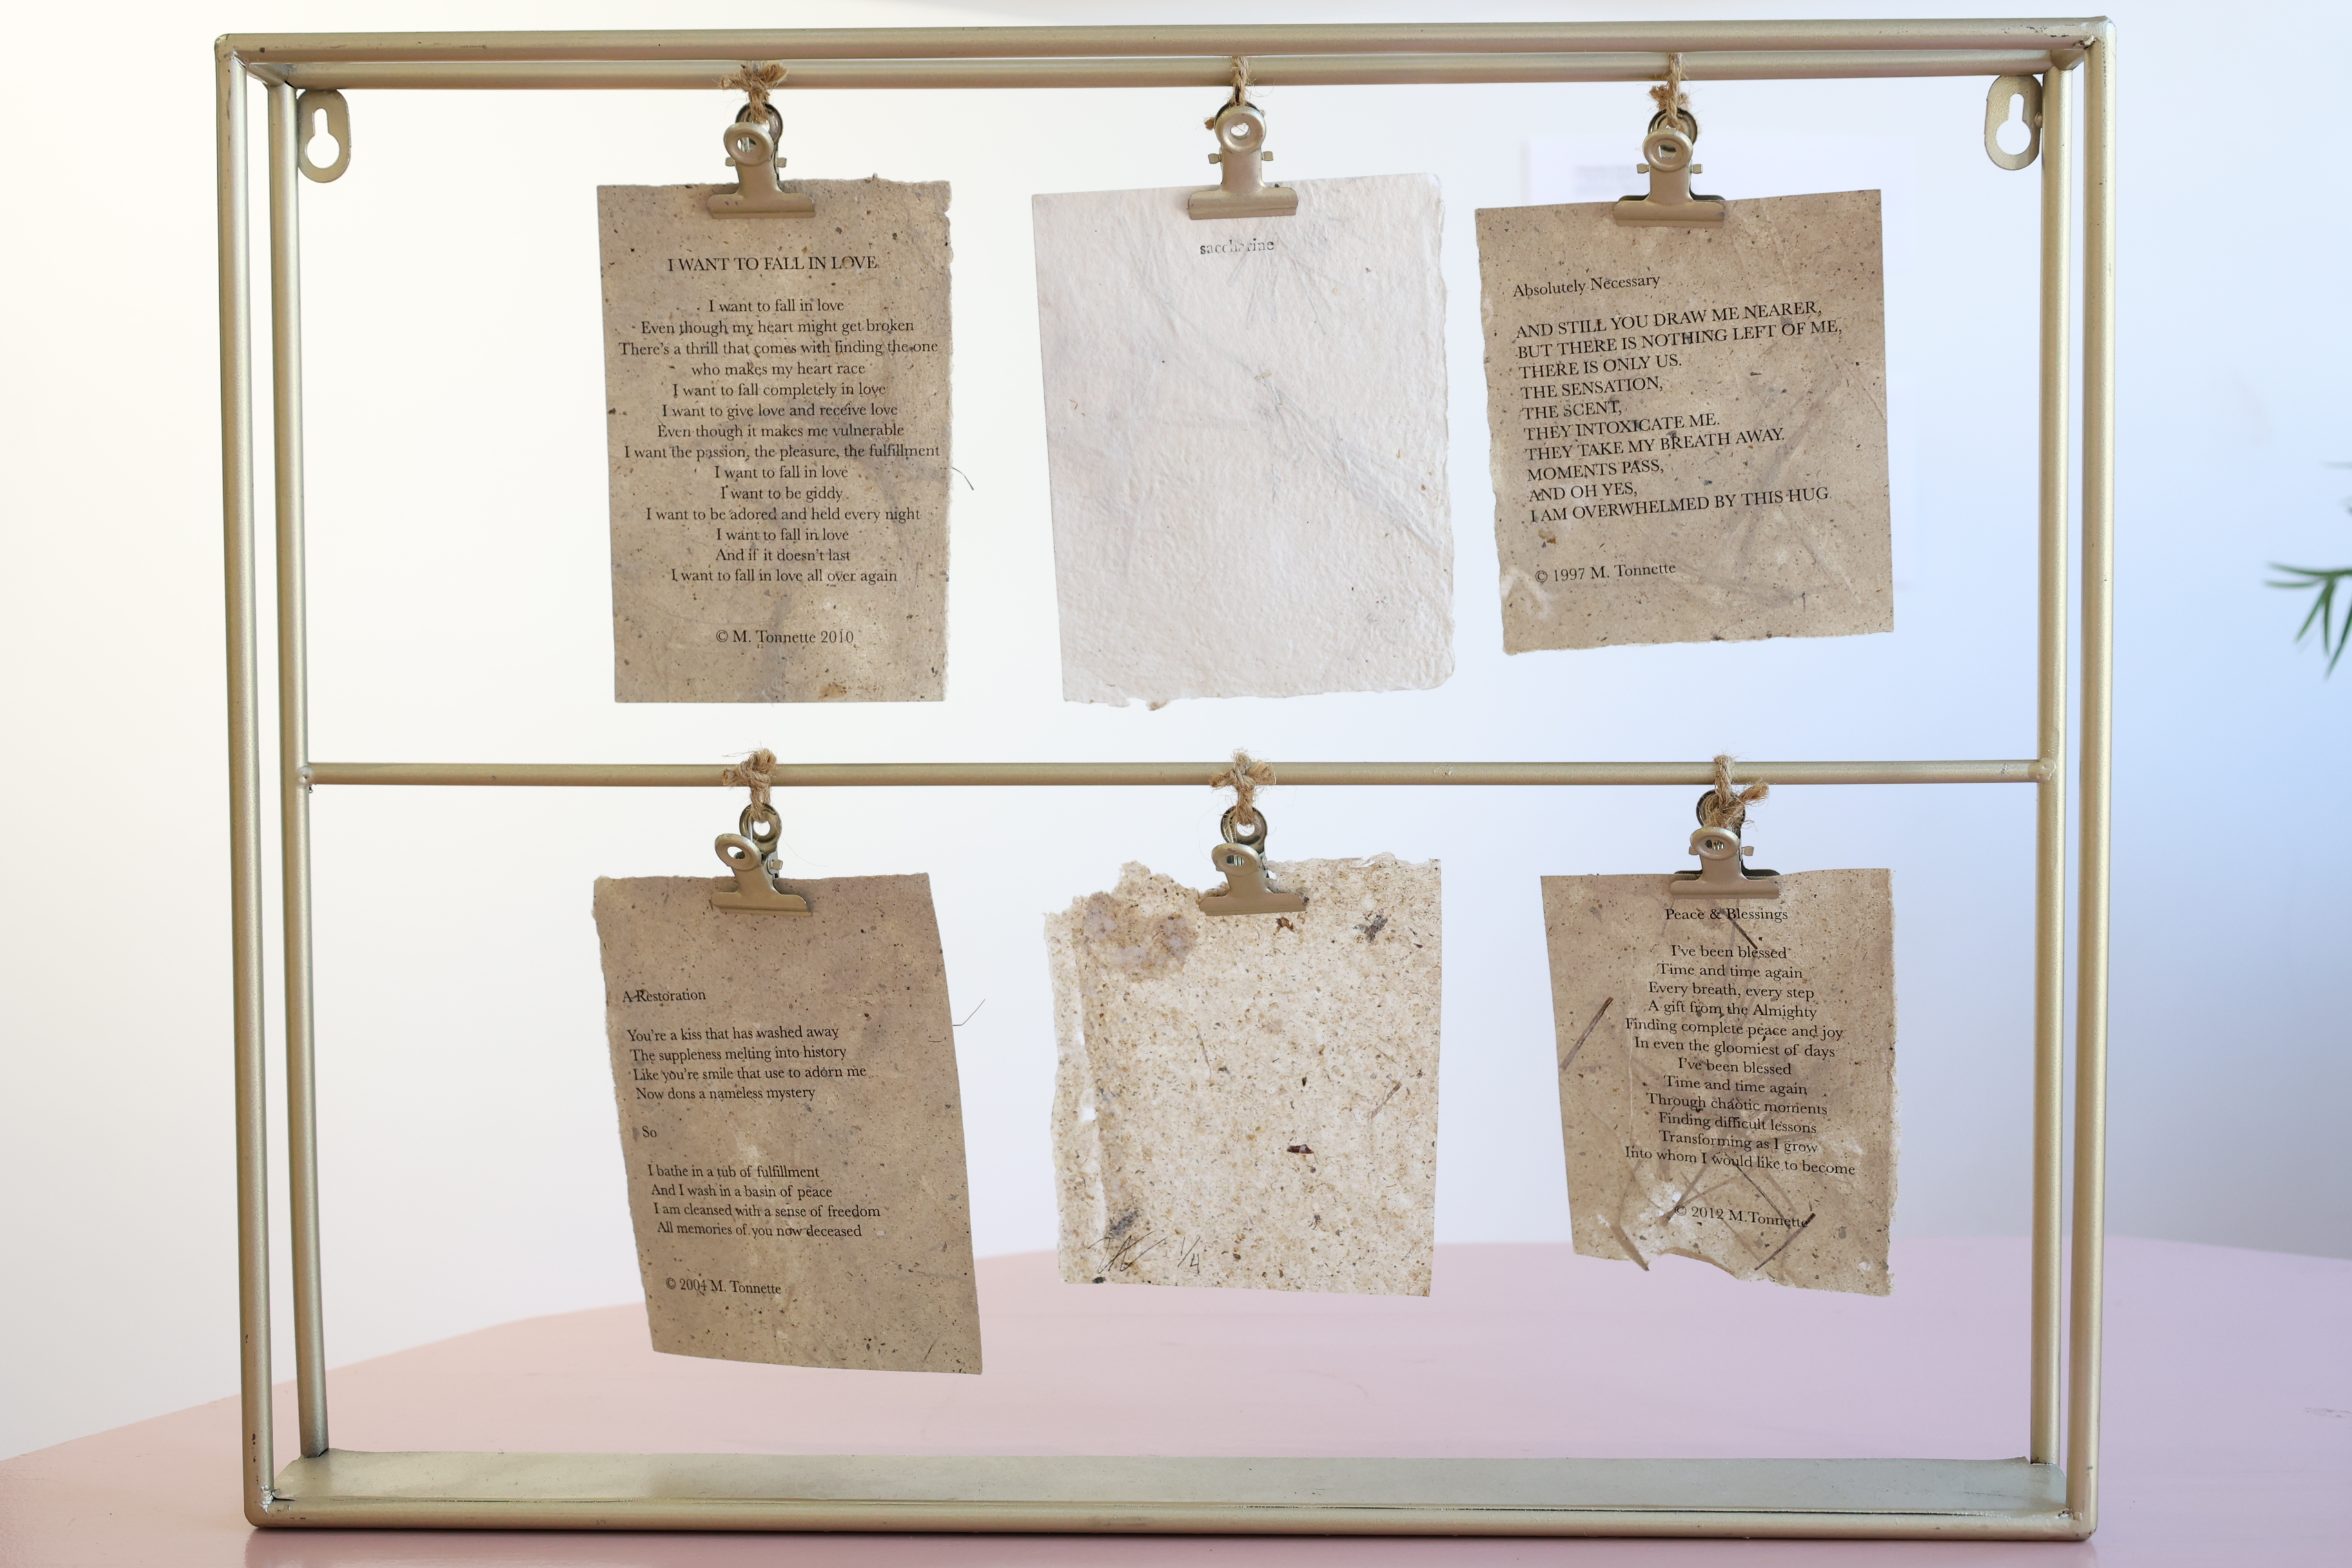 I WANT TO FALL IN LOVE
I want to fall in love
Even though my heart might get broken
There's a thrill that comes with finding the one
who makes my heart race
I want to fall completely in love
I want to give love and receive love
Even though it makes me vulnerable
I want the passion, the pleasure, the fulfillment
I want to fall in love
I want to be giddy
I want to be adored and held every night
I want to fall in love
And if it doesn't last
I want to fall in love all over again
© M. Tonnette 2010
saccharine
Absolutely Necessary
AND STILL YOU DRAW ME NEARER,
BUT THERE IS NOTHING LEFT OF ME,
THERE IS ONLY US.
THE SENSATION,
THE SCENT,
THEY INTOXICATE ME.
THEY TAKE MY BREATH AWAY.
MOMENTS PASS,
AND OH YES,
I AM OVERWHELMED BY THIS HUG
© 1997 M. Tonnette
A Restoration
You're a kiss that has washed away
The suppleness melting into history
Like you're smile that use to adorn me
Now dons a nameless mystery
So
I bathe in a tub of fulfillment
And I wash in a basin of peace
I am cleansed with a sense of freedom
All memories of you now deceased
© 2004 M. Tonnette
1/4
Peace & Blessings
I've been blessed
Time and time again
Every breath, every step
A gift from the Almighty
Finding complete peace and joy
In even the gloomiest of days
I've been blessed
Time and time again
Through chaotic moments
Finding difficult lessons
Transforming as I grow
Into whom I would like to become
© 2012 M.Tonnette